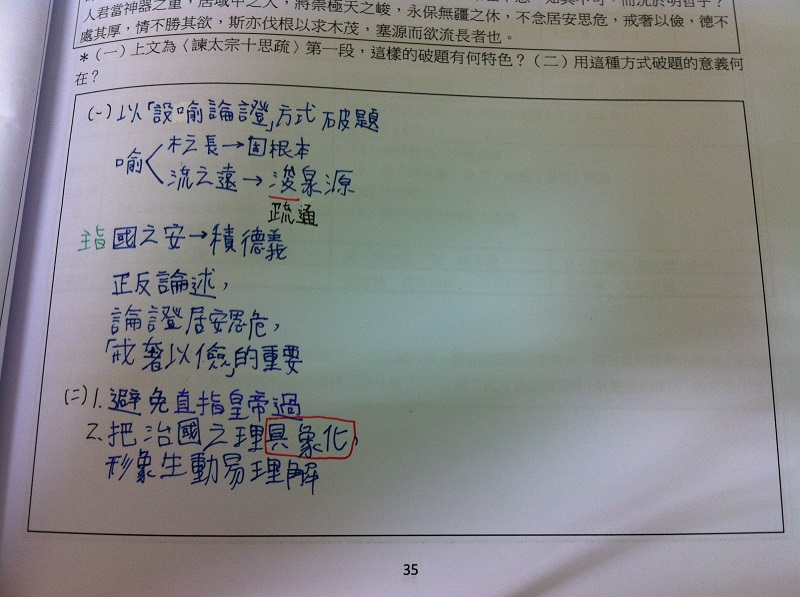 人君當神器之重，居域中之大，將崇極天之峻，永保無疆之休，不念居安思危，戒奢以儉，德不
處其厚，情不勝其欲，斯亦伐根以求木茂，塞源而欲流長者也。
*（一）上文為〈諫太宗十思疏〉第一段，這樣的破題有何特色？（二）用這種方式破題的意義何
在？
(一) 以「設喻論證」方式破題
喻 木之長→固根本
流之遠→浚泉源
疏通
主旨 國之安→積德義
正反論述，
論證居安思危，
「戒奢以儉」的重要
(二) 1. 避免直指皇帝過
2. 把治國之理具象化，
形象生動易理解
35